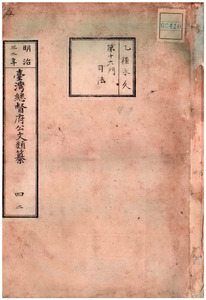 乙種永久
第十六門
司法
明治
三二年
臺灣總督府公文類纂
四二